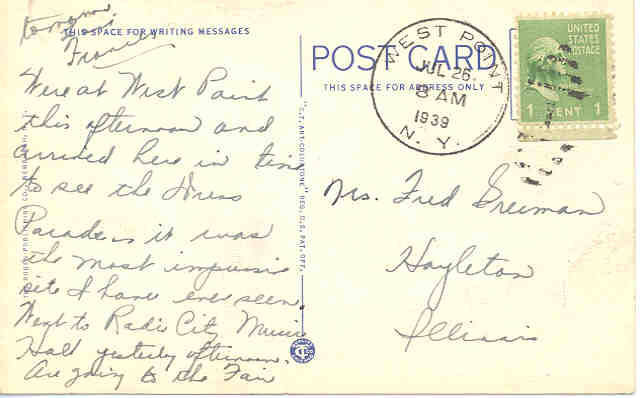 tomorrow
Frances
THIS SPACE FOR WRITING MESSAGES
Were at West Point
this afternoon and
arrived here in time
to see the Dress
Parade & it was
the most impressive
site I have ever seen
Went to Radio City Music
Hall yesterday afternoon.
Are going to the Fair
"C.T. ART-COLORTONE" REG. U.S. PAT. OFF.
POST CARD
THIS SPACE FOR ADDRESS ONLY
WEST POINT
JUL 26
8 AM
1939
N. Y.
UNITED
STATES
POSTAGE
1 CENT 1
Mrs. Fred Greiman
Hoyleton
Illinois